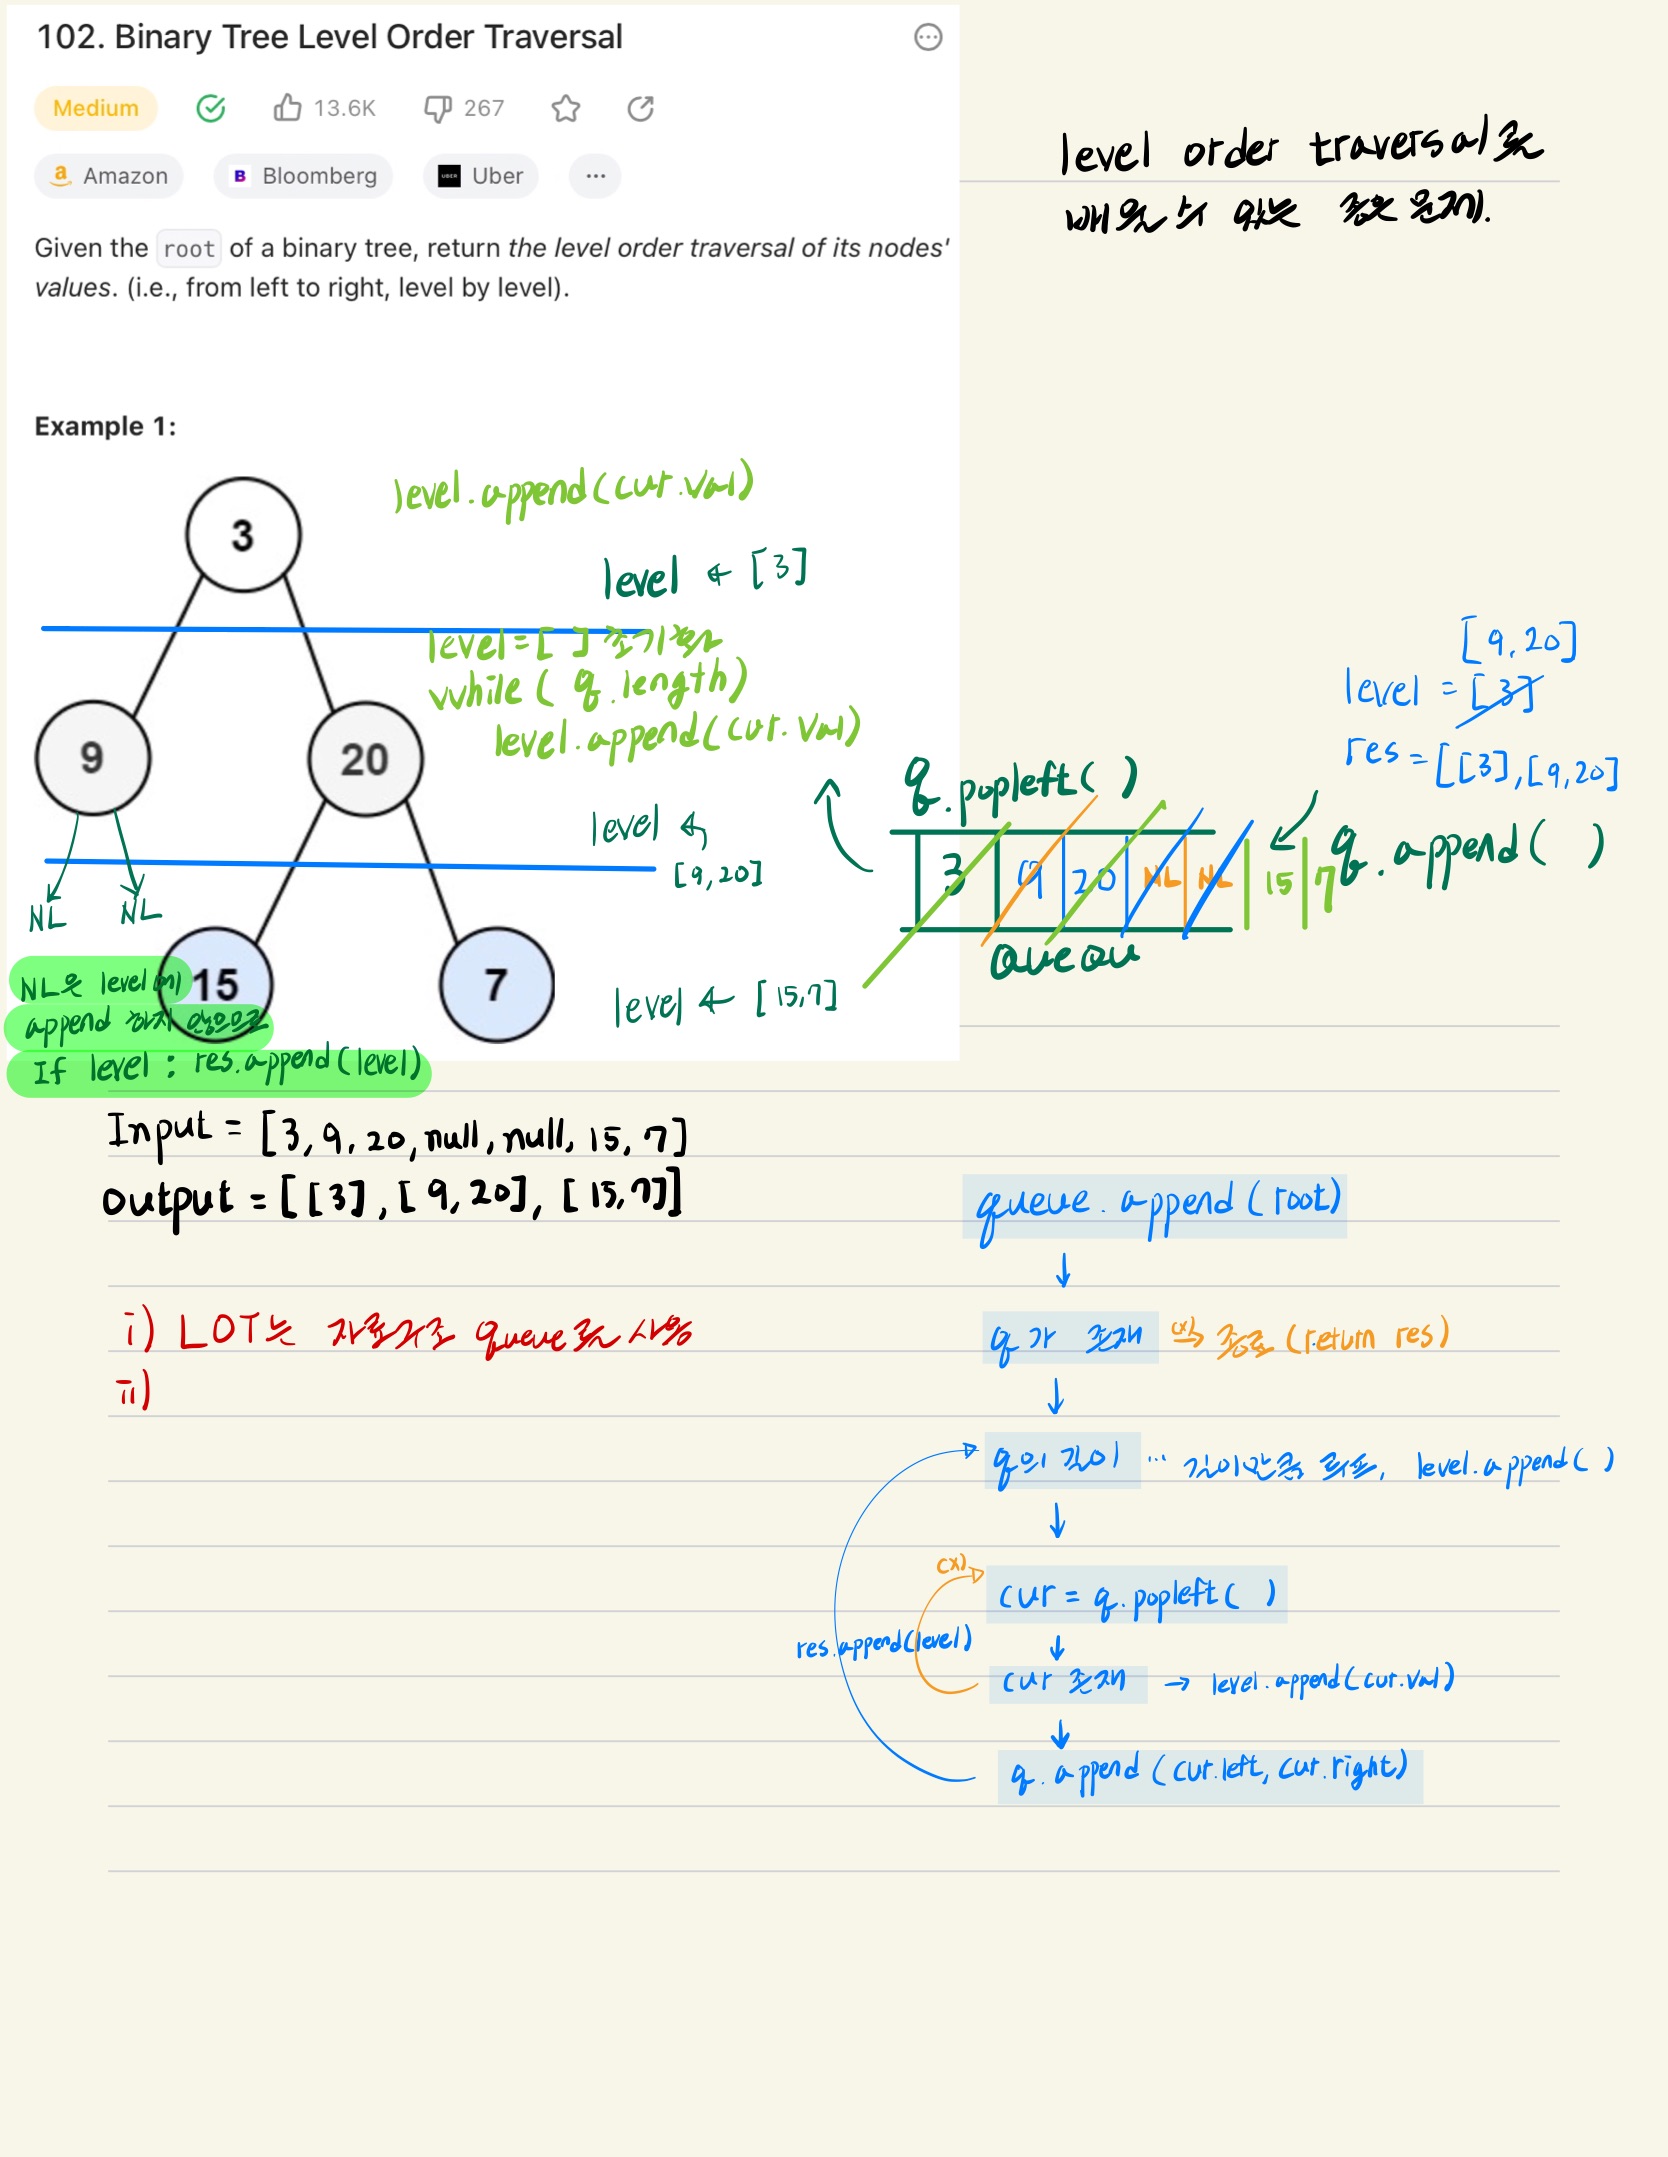 102. Binary Tree Level Order Traversal
Medium 13.6K 267
Amazon Bloomberg Uber ...
Given the root of a binary tree, return the level order traversal of its nodes'
values. (i.e., from left to right, level by level).
level order traversal을
배울 수 있는 좋은 문제.
Example 1:
level.append(cur.val)
3
level ← [3]
level=[ ] 초기화
while( q.length)
level.append(cur.val)
9
20
level ←
[9,20]
NL NL
15
7
level ← [15,7]
NL은 level에
append 하지 않으므로
If level : res.append(level)
[9,20]
level = [3]
res = [[3],[9,20]
q.popleft( )
3 9 20 NL NL 15 7
q.append( )
Queou
Input = [3, 9, 20, null, null, 15, 7]
output = [[3], [9, 20], [15,7]]
i) LOT는 자료구조 queue를 사용
ii)
queue.append(root)
↓
q가 존재 (x)→ 종료 (return res)
↓
q의 길이 ... 길이만큼 루프, level.append( )
↓
(x)
cur = q.popleft( )
res.append(level)
↓
cur 존재 → level.append(cur.val)
↓
q.append (cur.left, cur.right)